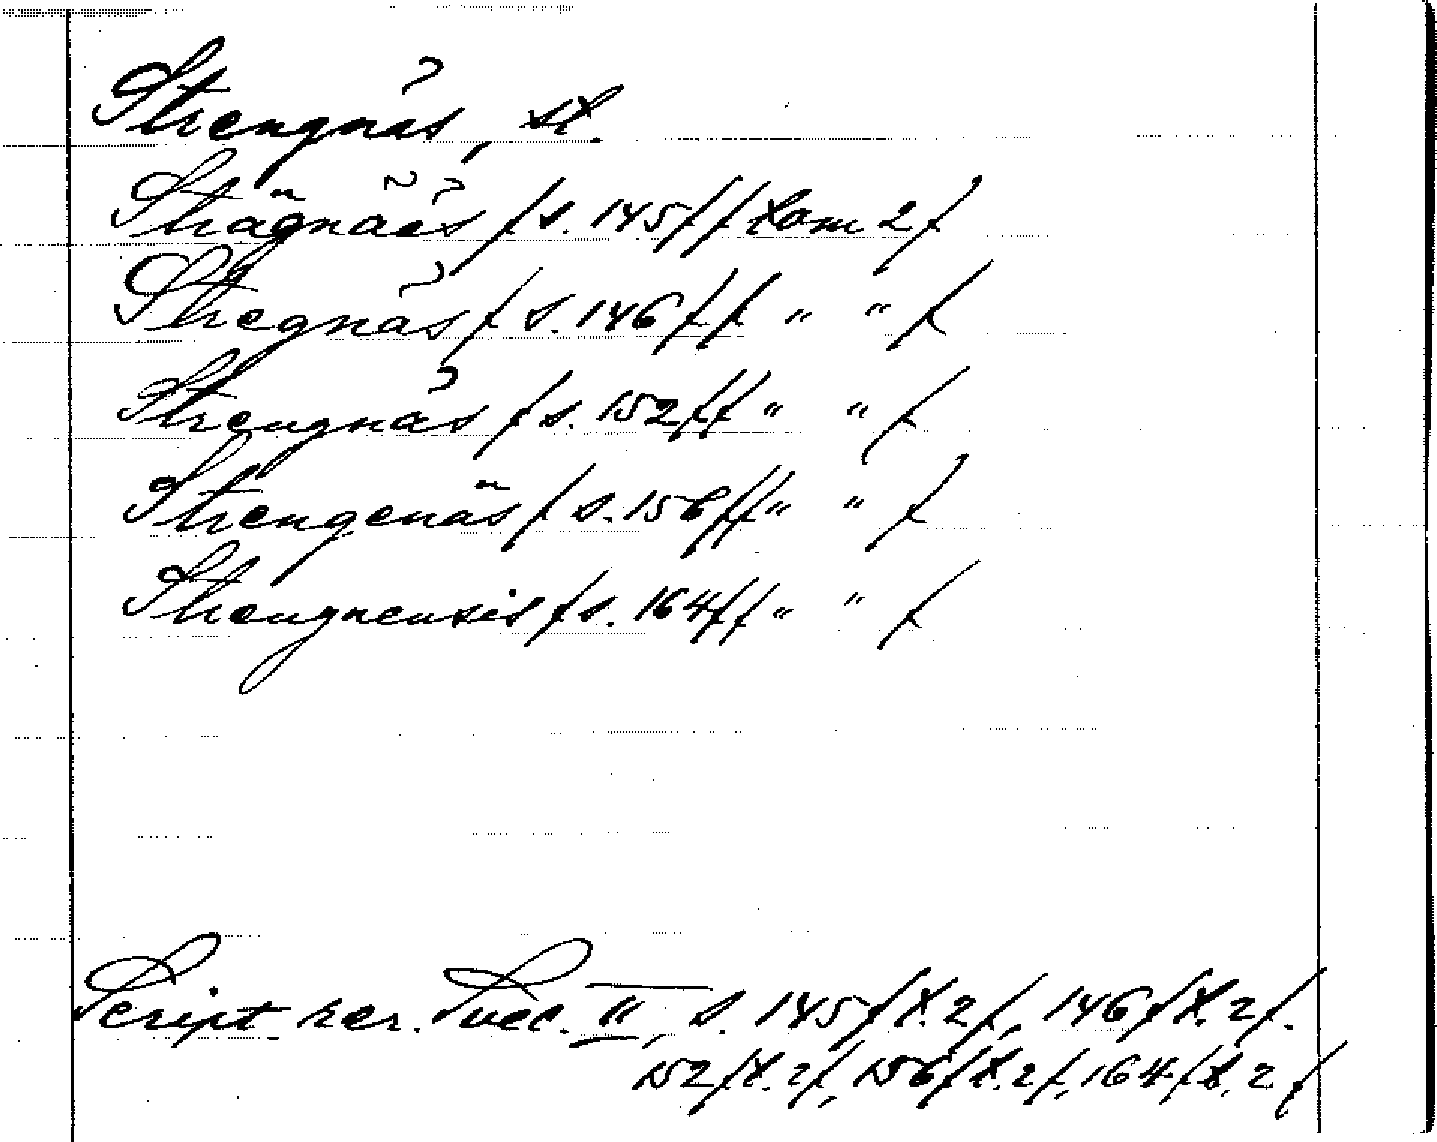 Strengnäs, st.
Strägnäes /s. 145/ /tom 2/
Stregnäs /s. 146/ / " " /
Strengnäs /s. 152/ / " " /
Strengenäs /s. 156/ / " " /
Strengnensis /s. 164/ / " " /
Script. rer. Svec. II, s. 145 /t. 2/, 146 /t. 2/.
152 /t. 2/, 156 /t. 2/, 164 /t. 2/